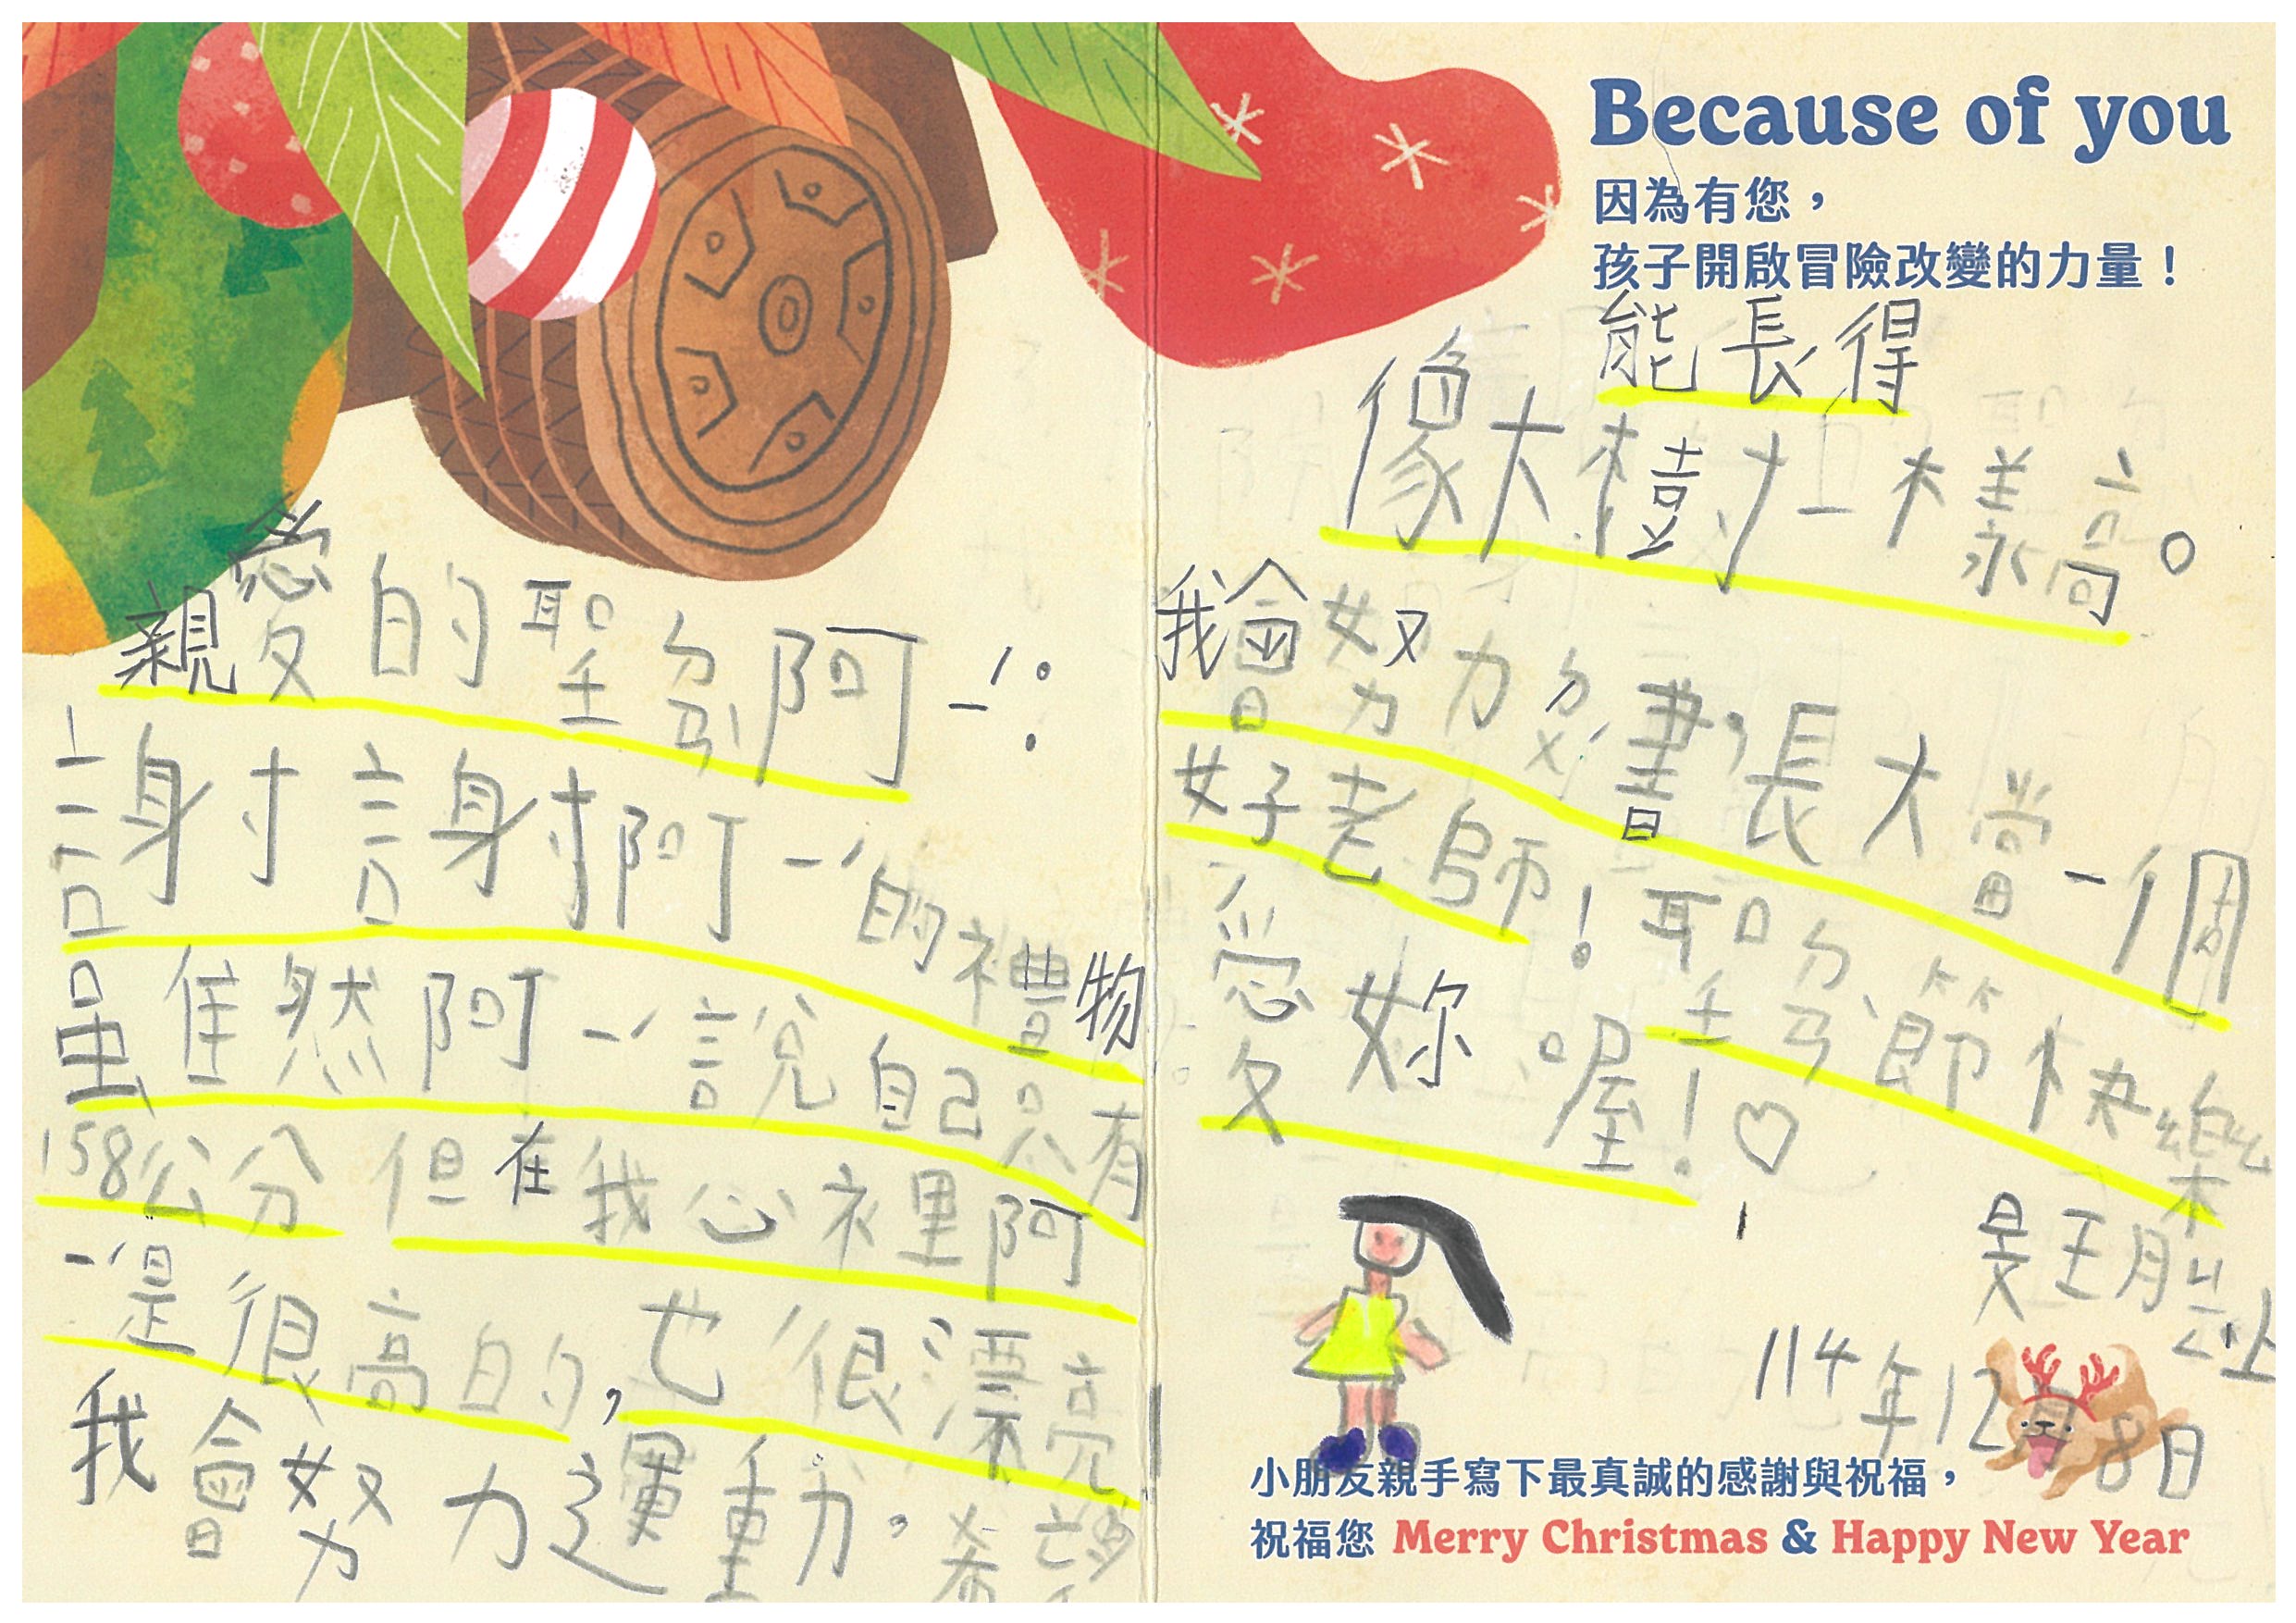 Because of you
因為有您，
孩子開啟冒險改變的力量！
親愛的聖ㄉㄢˋ阿一ˊ：
謝謝阿一ˊ的禮物
雖然阿一ˊ說自己只有
158公分但在我心裡阿
一ˊ是很高的，也很漂亮
我會努力運動，希望
能長得
像大樹一樣高。
我會努力ㄉㄨˊ書，長大當一個
好老師！聖ㄉㄢˋ節快樂
愛妳喔！♡
114年12月8日
小朋友親手寫下最真誠的感謝與祝福，
祝福您 Merry Christmas & Happy New Year